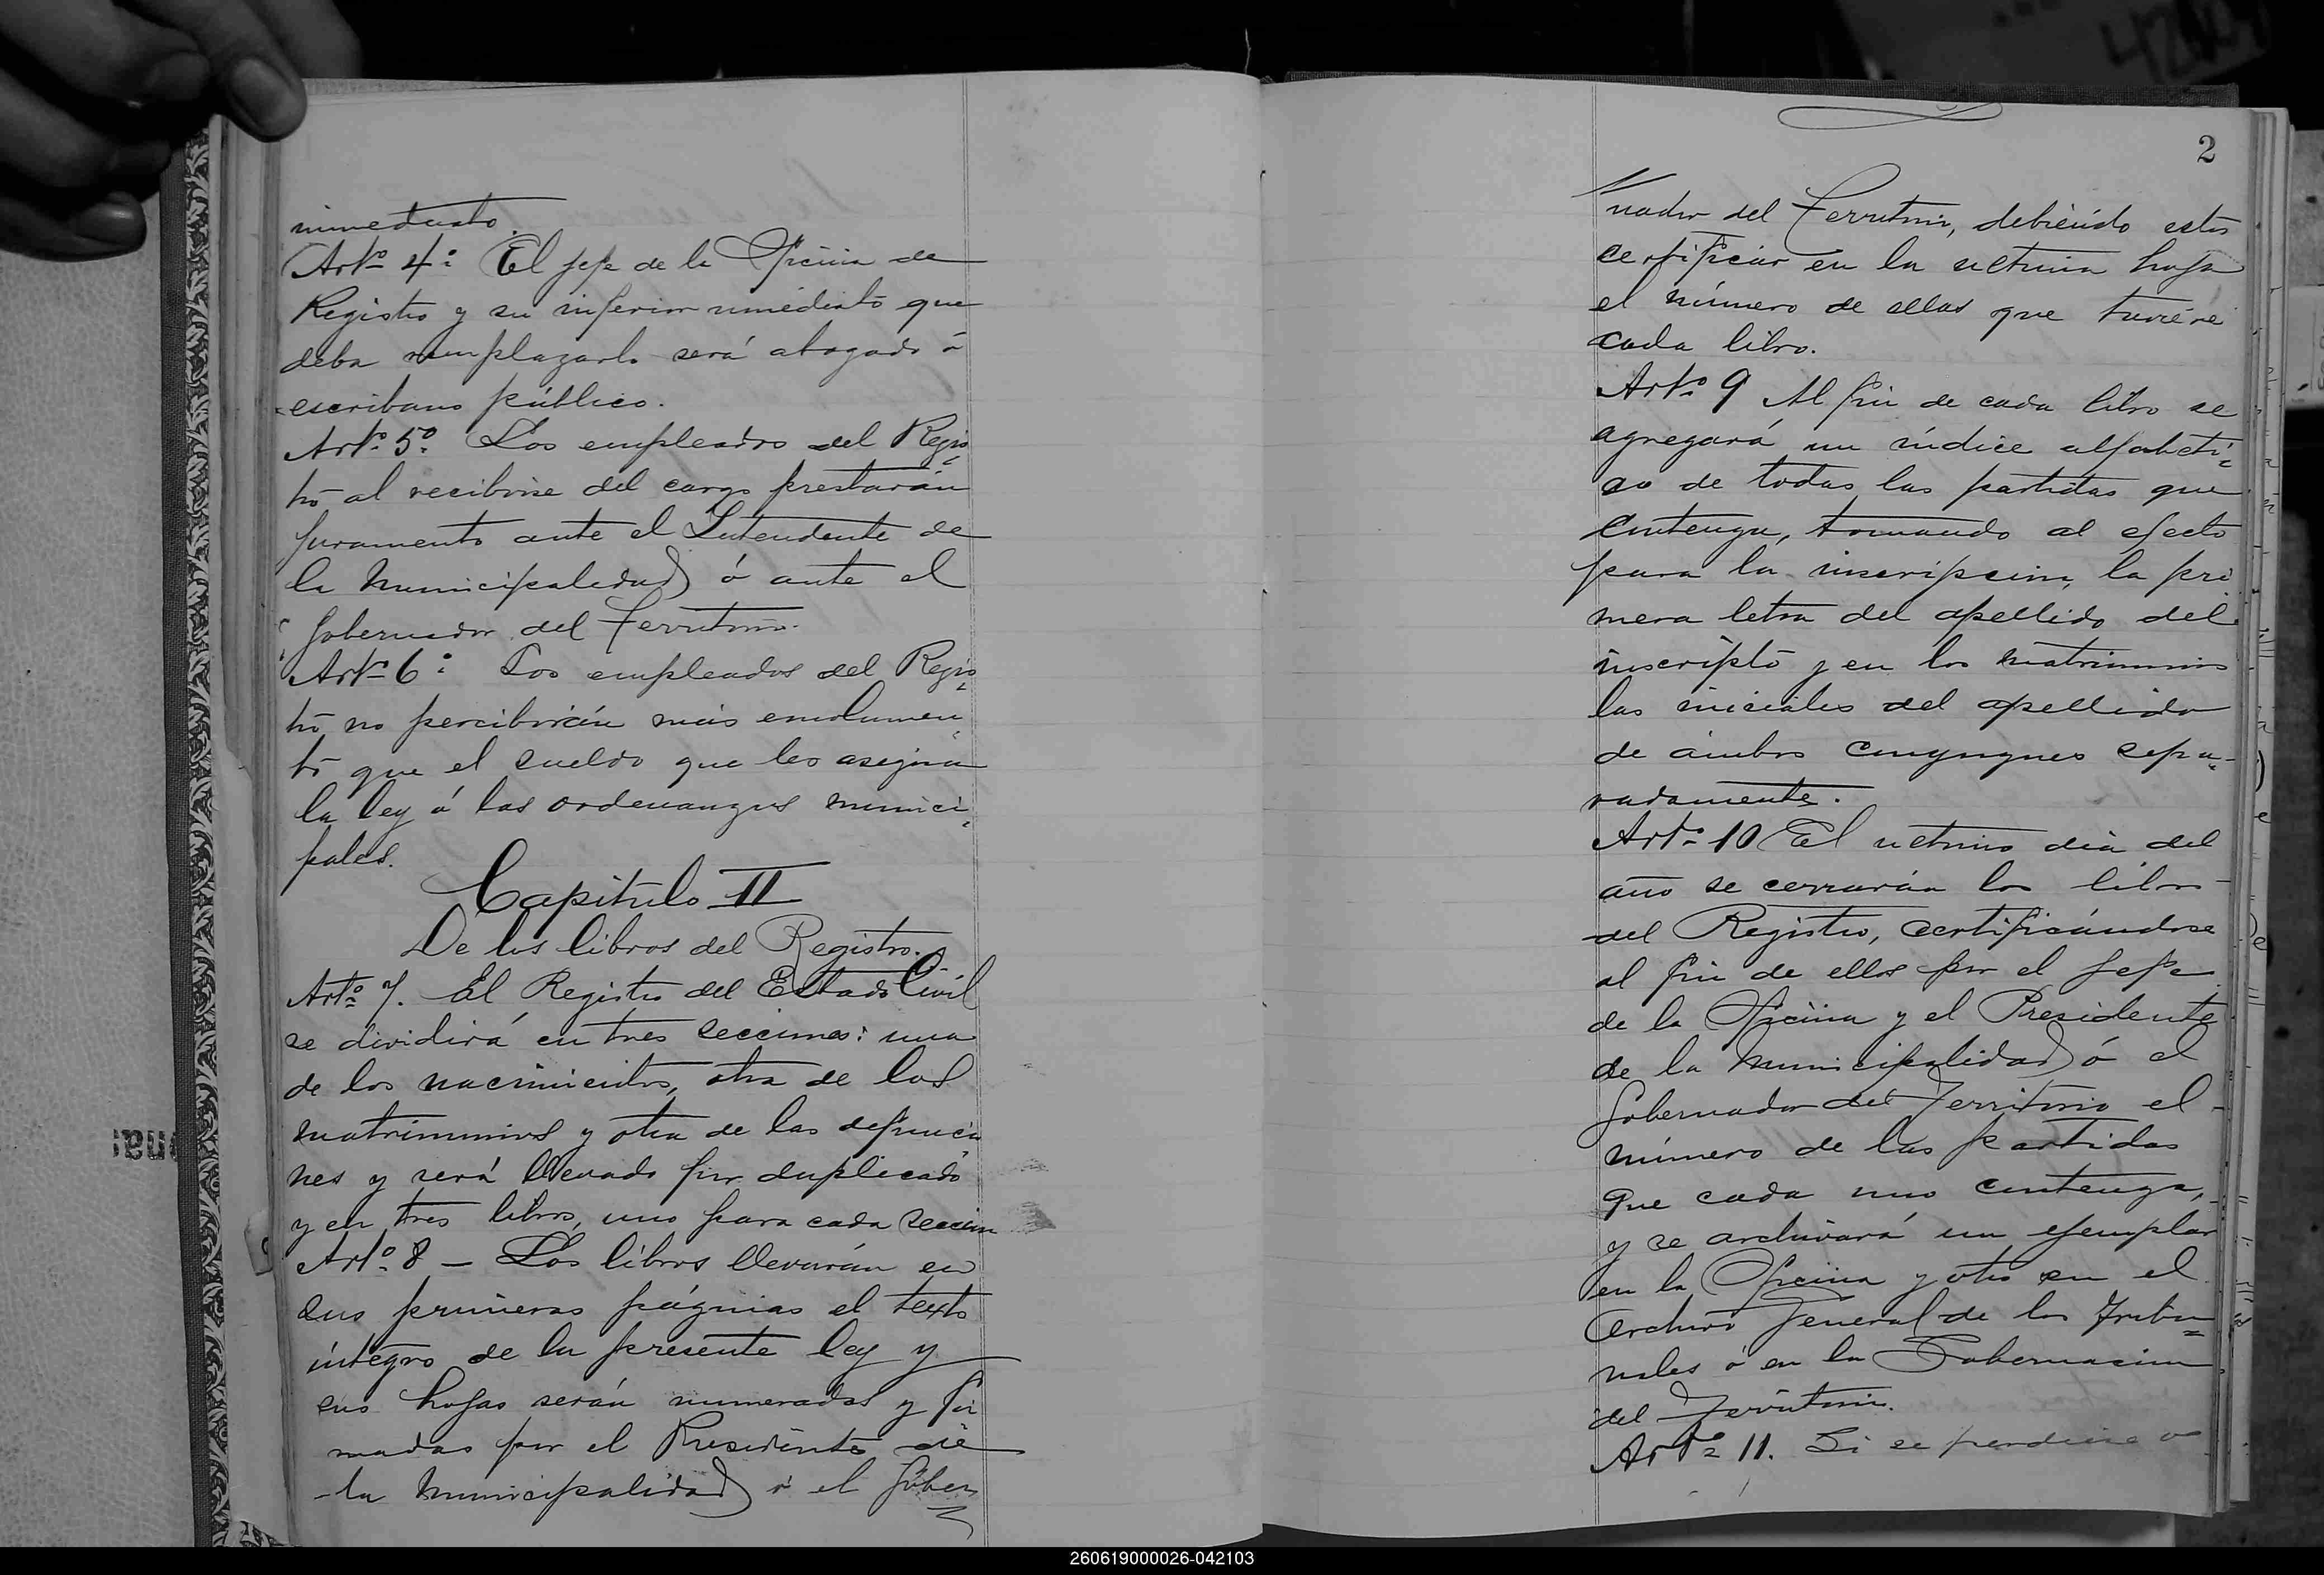 inmediato.
Arto 4o El jefe de la Oficina de
Registro y su inferior inmediato que
deba reemplazarlo será abogado ó
escribano público.
Arto 5o Los empleados del Regis
tro al recibirse del cargo prestarán
juramento ante el Intendente de
la Municipalidad ó ante el
Gobernador del Territorio.
Arto 6o Los empleados del Regis
tro no percibirán más emolumen
to que el sueldo que les asigna
la ley ó las ordenanzas munici
pales.
Capitulo II
De los libros del Registro.
Arto 7. El Registro del Estado Civil
se dividirá en tres secciones: una
de los nacimientos, otra de los
matrimonios y otra de las defuncio
nes y será llevado por duplicado
y en tres libros, uno para cada seccion
Arto 8 — Los libros llevarán en
sus primeras páginas el texto
íntegro de la presente ley y
sus hojas serán numeradas y fir
madas por el Presidente de
la Municipalidad ó el Gober
2
nador del Territorio, debiendo estos
certificar en la ultima hoja
el número de ellas que tuviere
cada libro.
Arto 9 Al fin de cada libro se
agregará un índice alfabeti-
co de todas las partidas que
contenga, tomando al efecto
para la inscripcion, la pri
mera letra del apellido del
inscripto y en los matrimonios
las iniciales del apellido
de ámbos conyugues sepa-
radamente.
Arto 10 El ultimo dia del
año se cerrarán los libros
del Registro, certificándose
al fin de ellos por el Jefe
de la Oficina y el Presidente
de la Municipalidad ó el
Gobernador del Territorio el
número de las partidas
que cada uno contenga,
y se archivará un ejemplar
en la Oficina y otro en el
Archivo General de los Tribu-
nales ó en la Gobernacion
del Territorio.
Arto 11. Si se perdiese o
260619000026-042103